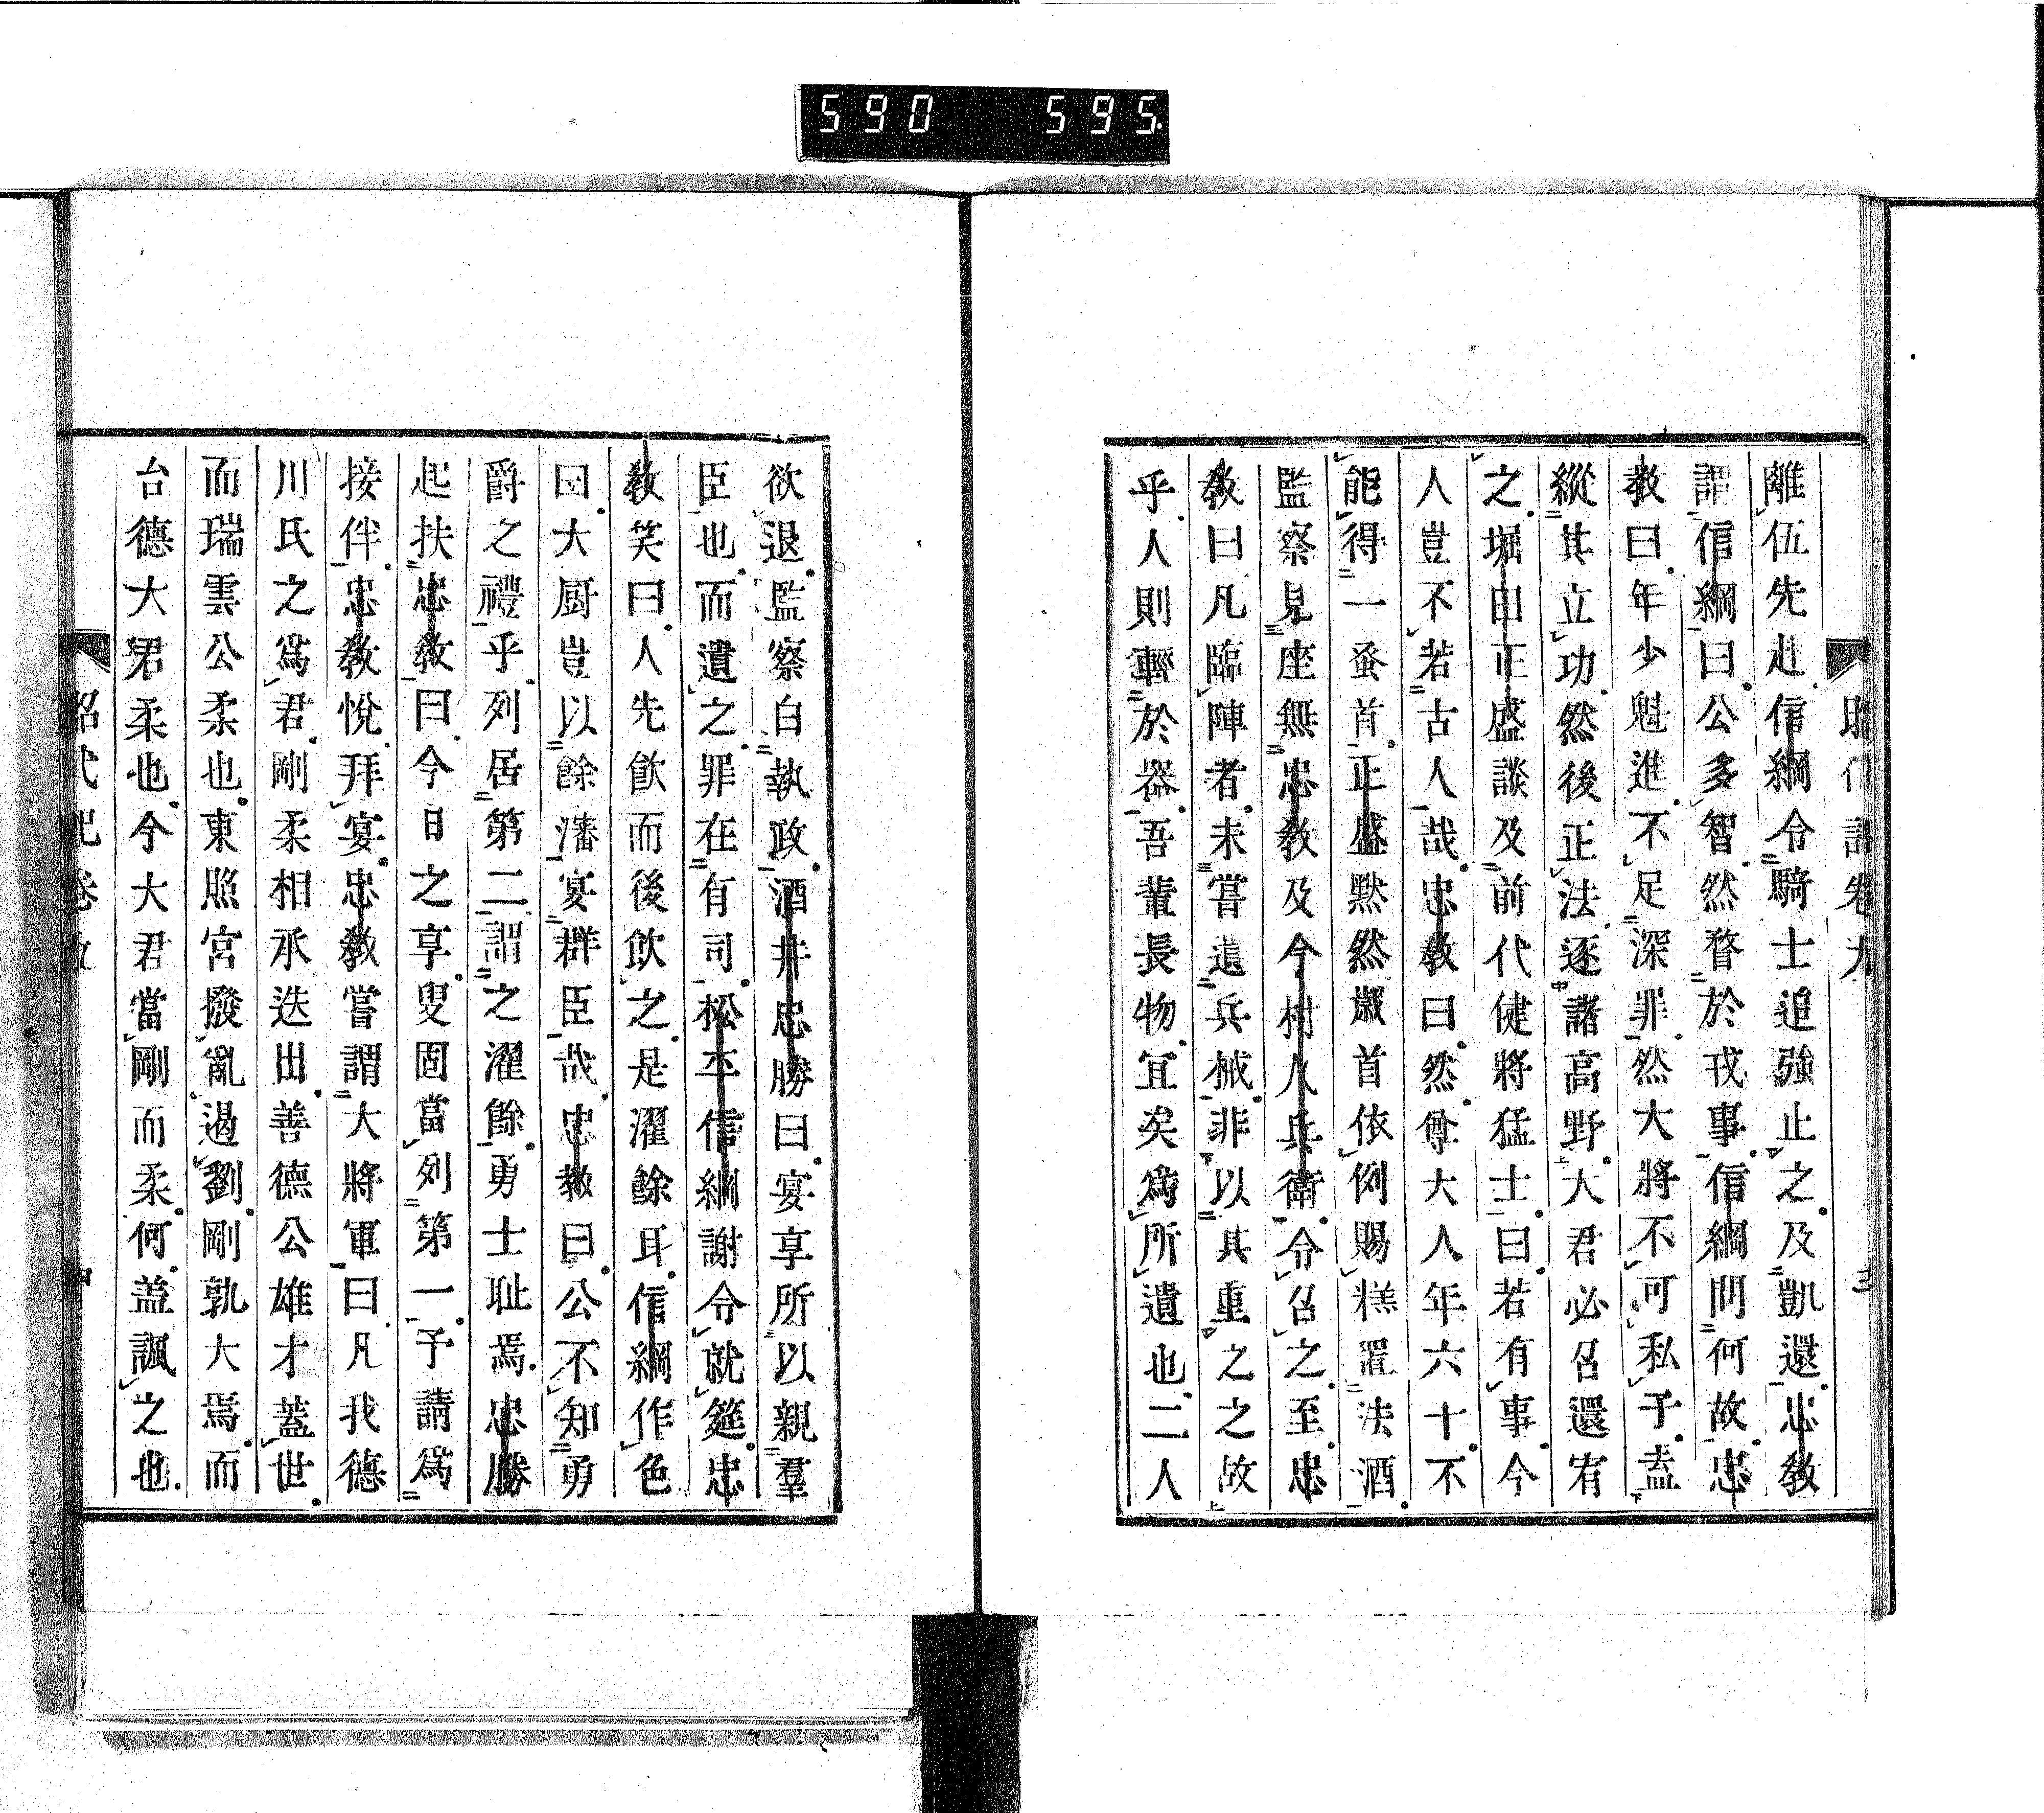 590 595
離伍先赴信綱令騎士追強止之及凱還忠敎
謂信綱曰公多智然瞀於戎事信綱問何故忠
敎曰年少魁進不足深罪然大將不可私予盍
縱其立功然後正法逐諸高野大君必召還宥
之堀田正盛談及前代健將猛士曰若有事今
人豈不若古人哉忠敎曰然尊大人年六十不
能得一蚤首正盛默然歲首依例賜糕置法酒
監察見座無忠敎及今村八兵衛令召之至忠
敎曰凡臨陣者未嘗遺兵械非以其重之之故
乎人則輕於器吾輩長物宜矣爲所遺也二人
欲退監察白執政酒井忠勝曰宴享所以親羣
臣也而遺之罪在有司松平信綱謝令就筵忠
敎笑曰人先飮而後飮之是濯餘耳信綱作色
曰大厨豈以餘瀋宴群臣哉忠敎曰公不知勇
爵之禮乎列居第二謂之濯餘勇士耻焉忠勝
起扶忠敎曰今日之享叟固當列第一予請爲
接伴忠敎悅拜宴忠敎嘗謂大將軍曰凡我德
川氏之爲君剛柔相承迭出善德公雄才蓋世
而瑞雲公柔也東照宮撥亂遏劉剛孰大焉而
台德大君柔也今大君當剛而柔何蓋諷之也